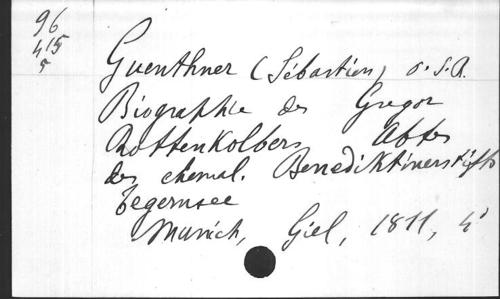 96
415
5
Guenthner (Sébastien) O. S. B.
Biographie des Gregor
Rottenkolbers Abtes
des ehemal. Benediktinerstifts
Tegernsee
Munich, Giel, 1811, 4°